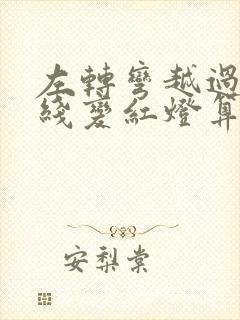 左轉彎越過
綫變紅燈算
安梨棠